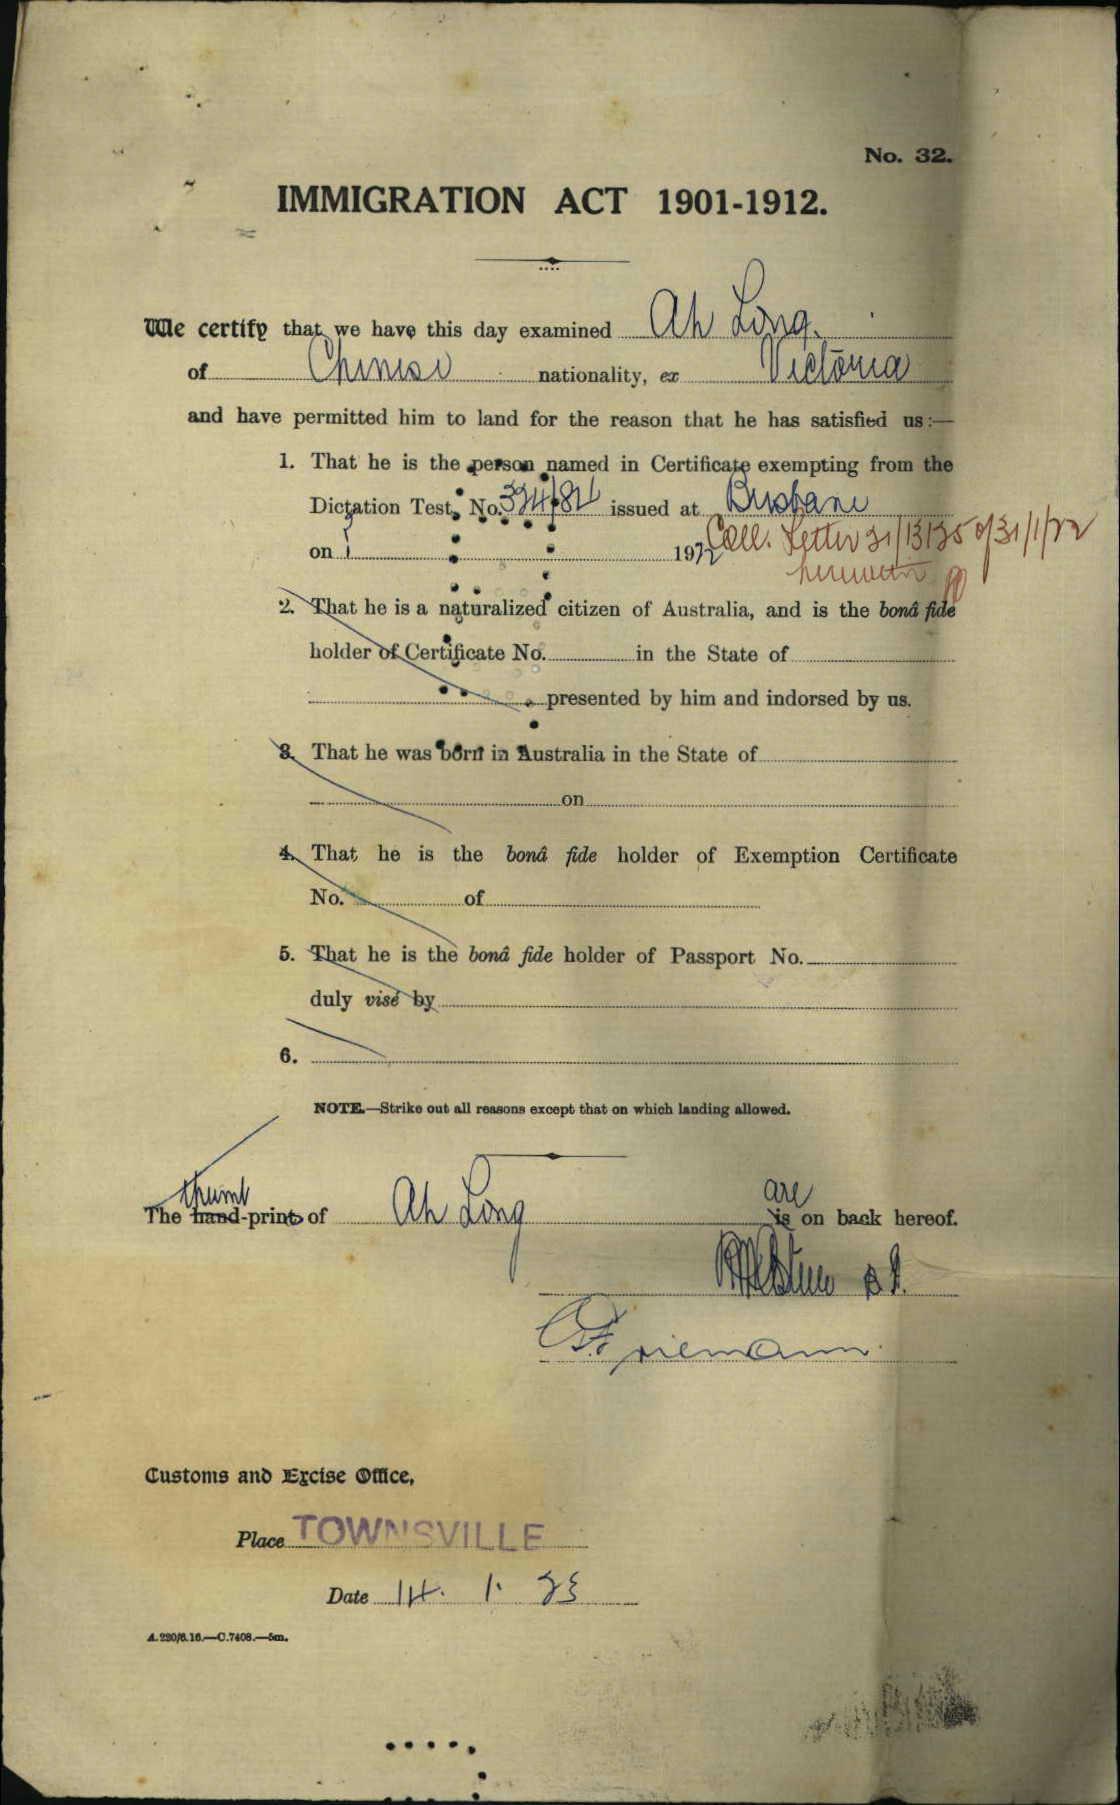 No. 32.
IMMIGRATION ACT 1901-1912.
We certify that we have this day examined Ah Long.
of Chinese nationality, ex Victoria
and have permitted him to land for the reason that he has satisfied us:—
1. That he is the person named in Certificate exempting from the
Dictation Test, No. 334/82 issued at Brisbane
on 1922 Coll. Letter 31/13135 of 31/1/22
herewith
2. That he is a naturalized citizen of Australia, and is the bonâ fide
holder of Certificate No. in the State of
presented by him and indorsed by us.
3. That he was born in Australia in the State of
on
4. That he is the bonâ fide holder of Exemption Certificate
No. of
5. That he is the bonâ fide holder of Passport No.
duly visé by
6.
NOTE.—Strike out all reasons except that on which landing allowed.
thumb are
The hand-prints of Ah Long is on back hereof.
Customs and Excise Office,
Place TOWNSVILLE
Date 14. 1. 23
A.220/6.16.—C.7408.—5m.